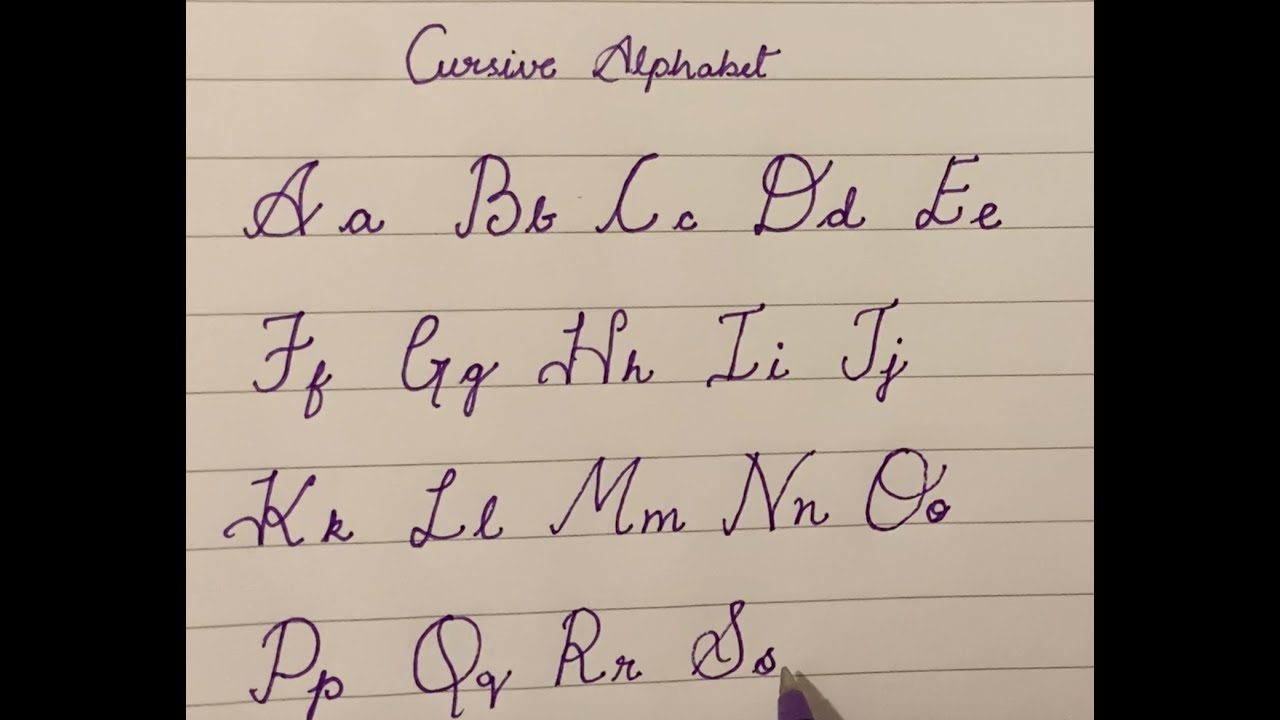 Cursive Alphabet
Aa Bb Cc Dd Ee
Ff Gg Hh Ii Jj
Kk Ll Mm Nn Oo
Pp Qq Rr Ss